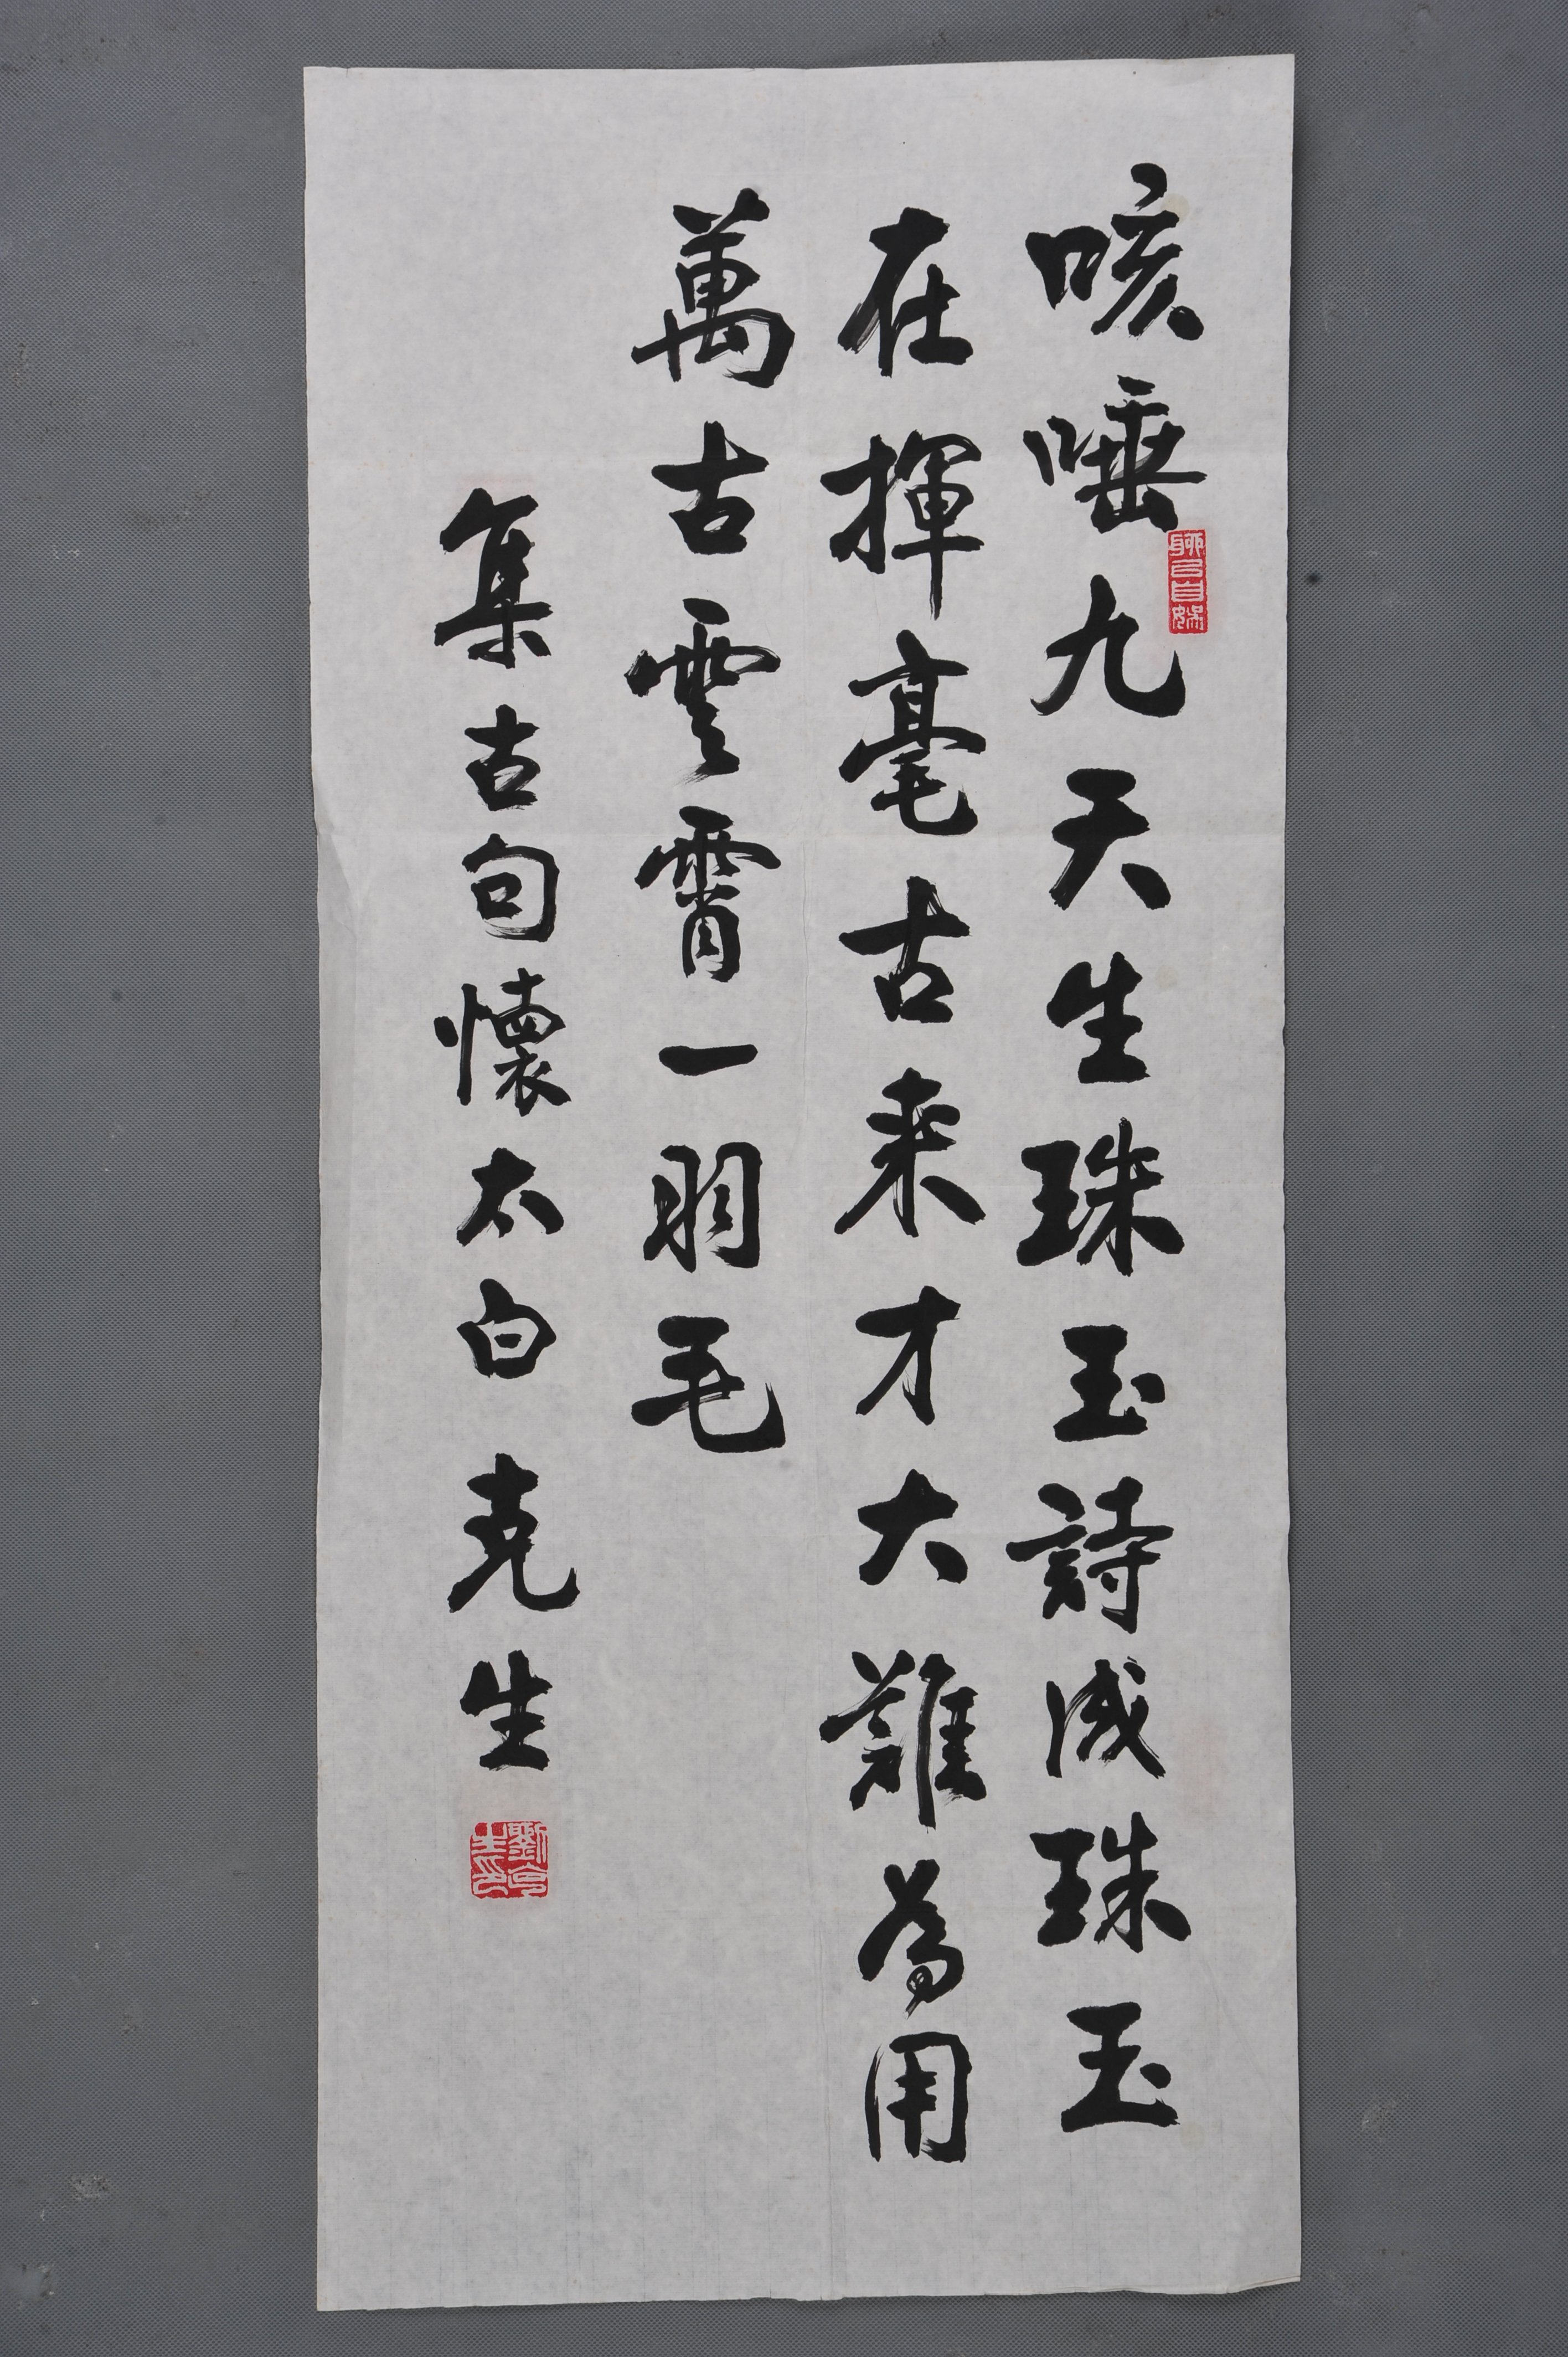 咳唾九天生珠玉詩成珠玉
在揮毫古来才大難為用
萬古雲霄一羽毛
集古句懷太白克生